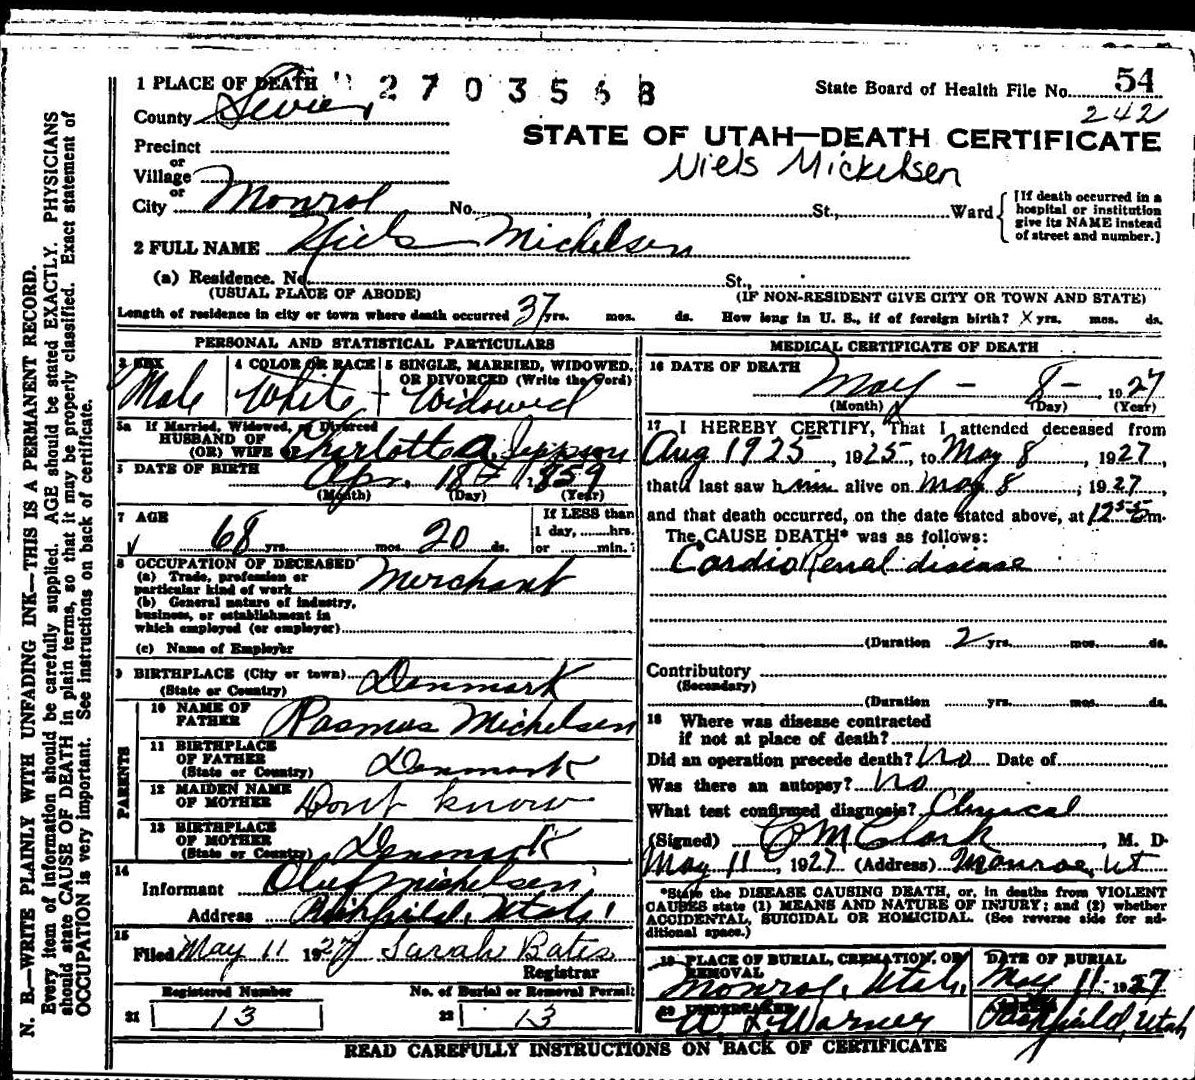 1 PLACE OF DEATH 2703568 State Board of Health File No. 54
County Sevier 242
STATE OF UTAH—DEATH CERTIFICATE
Precinct
or
Village
Niels Mickelsen
or
City Monroe No. , St., Ward {[If death occurred in a hospital or institution give its NAME instead of street and number.]
2 FULL NAME Niels Mickelsen
(a) Residence. No. St.,
(USUAL PLACE OF ABODE) (IF NON-RESIDENT GIVE CITY OR TOWN AND STATE)
Length of residence in city or town where death occurred 37 yrs. mos. ds. How long in U. S., if of foreign birth? X yrs. mos. ds.
PERSONAL AND STATISTICAL PARTICULARS
3 SEX Male
4 COLOR OR RACE White
5 SINGLE, MARRIED, WIDOWED, OR DIVORCED (Write the word) Widowed
5a If Married, Widowed, or Divorced
HUSBAND OF
(OR) WIFE OF Charlotte A. Jeppson
6 DATE OF BIRTH Apr. 18 1859
(Month) (Day) (Year)
7 AGE 68 yrs. mos. 20 ds.
If LESS than
1 day, hrs.
or min.
8 OCCUPATION OF DECEASED
(a) Trade, profession or
particular kind of work Merchant
(b) General nature of industry,
business, or establishment in
which employed (or employer)
(c) Name of Employer
9 BIRTHPLACE (City or town) Denmark
(State or Country)
PARENTS
10 NAME OF FATHER Rasmus Mickelsen
11 BIRTHPLACE OF FATHER
(State or Country) Denmark
12 MAIDEN NAME OF MOTHER Dont know
13 BIRTHPLACE OF MOTHER
(State or Country) Denmark
14 Informant Oluf Mickelsen
Address Richfield, Utah
15 Filed May 11 1927 Sarah Bates
Registrar
Registered Number No. of Burial or Removal Permit
21 13 22 13
MEDICAL CERTIFICATE OF DEATH
16 DATE OF DEATH
May - 8 - 1927
(Month) (Day) (Year)
17 I HEREBY CERTIFY, That I attended deceased from
Aug 1925, 1925, to May 8, 1927,
that I last saw him alive on May 8; 1927,
and that death occurred, on the date stated above, at 12 55 m.
The CAUSE DEATH* was as follows:
Cardio Renal disease
(Duration 2 yrs. mos. ds.
Contributory
(Secondary)
(Duration yrs. mos. ds.
18 Where was disease contracted
if not at place of death?
Did an operation precede death? No Date of
Was there an autopsy? No
What test confirmed diagnosis? Clinical
(Signed) M Clark, M. D.
May 11, 1927 (Address) Monroe, Ut
*State the DISEASE CAUSING DEATH, or, in deaths from VIOLENT
CAUSES state (1) MEANS AND NATURE OF INJURY; and (2) whether
ACCIDENTAL, SUICIDAL OR HOMICIDAL. (See reverse side for additional space.)
19 PLACE OF BURIAL, CREMATION, OR REMOVAL DATE OF BURIAL
Monroe, Utah, May 11 - 1927
20 UNDERTAKER
Warner Richfield, Utah
READ CAREFULLY INSTRUCTIONS ON BACK OF CERTIFICATE
N. B.—WRITE PLAINLY WITH UNFADING INK—THIS IS A PERMANENT RECORD.
Every item of information should be carefully supplied. AGE should be stated EXACTLY. PHYSICIANS
should state CAUSE OF DEATH in plain terms, so that it may be properly classified. Exact statement of
OCCUPATION is very important. See instructions on back of certificate.